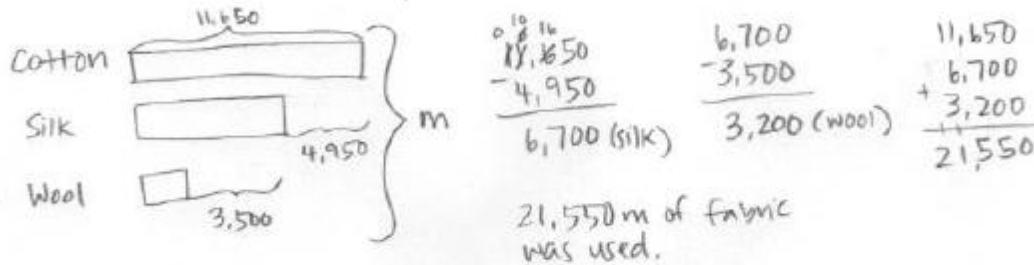 11,650
Cotton
Silk
4,950
Wool
3,500
m
0 10 16
11,650
- 4,950
6,700 (silk)
6,700
- 3,500
3,200 (wool)
11,650
6,700
+ 3,200
21,550
21,550 m of fabric
was used.